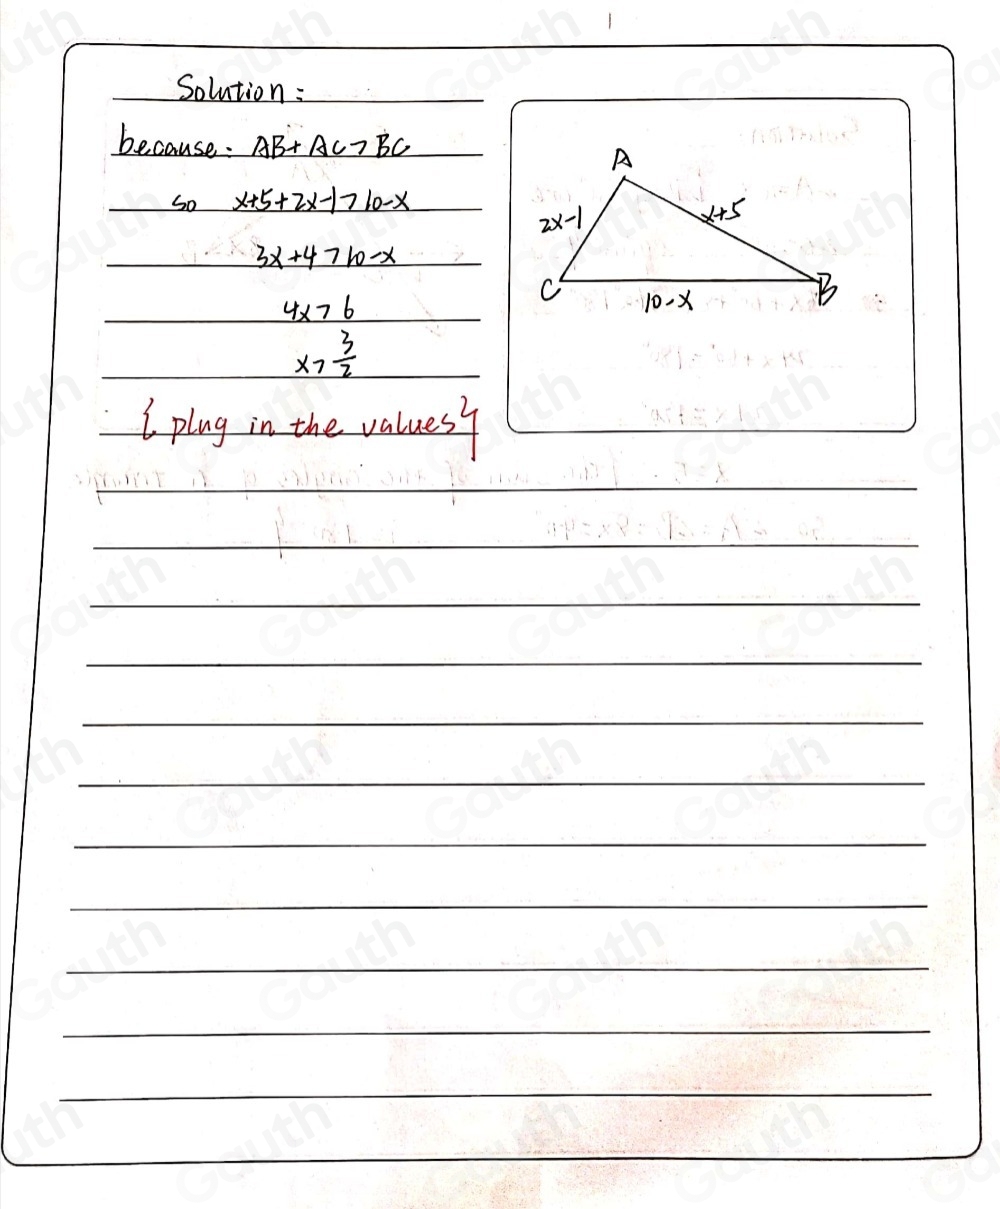 Solution:
because: AB+AC>BC
so x+5+2x-1>10-x
3x+4>10-x
4x>6
x>3/2
{plug in the values}
A
2x-1
x+5
C
B
10-x
Gauth